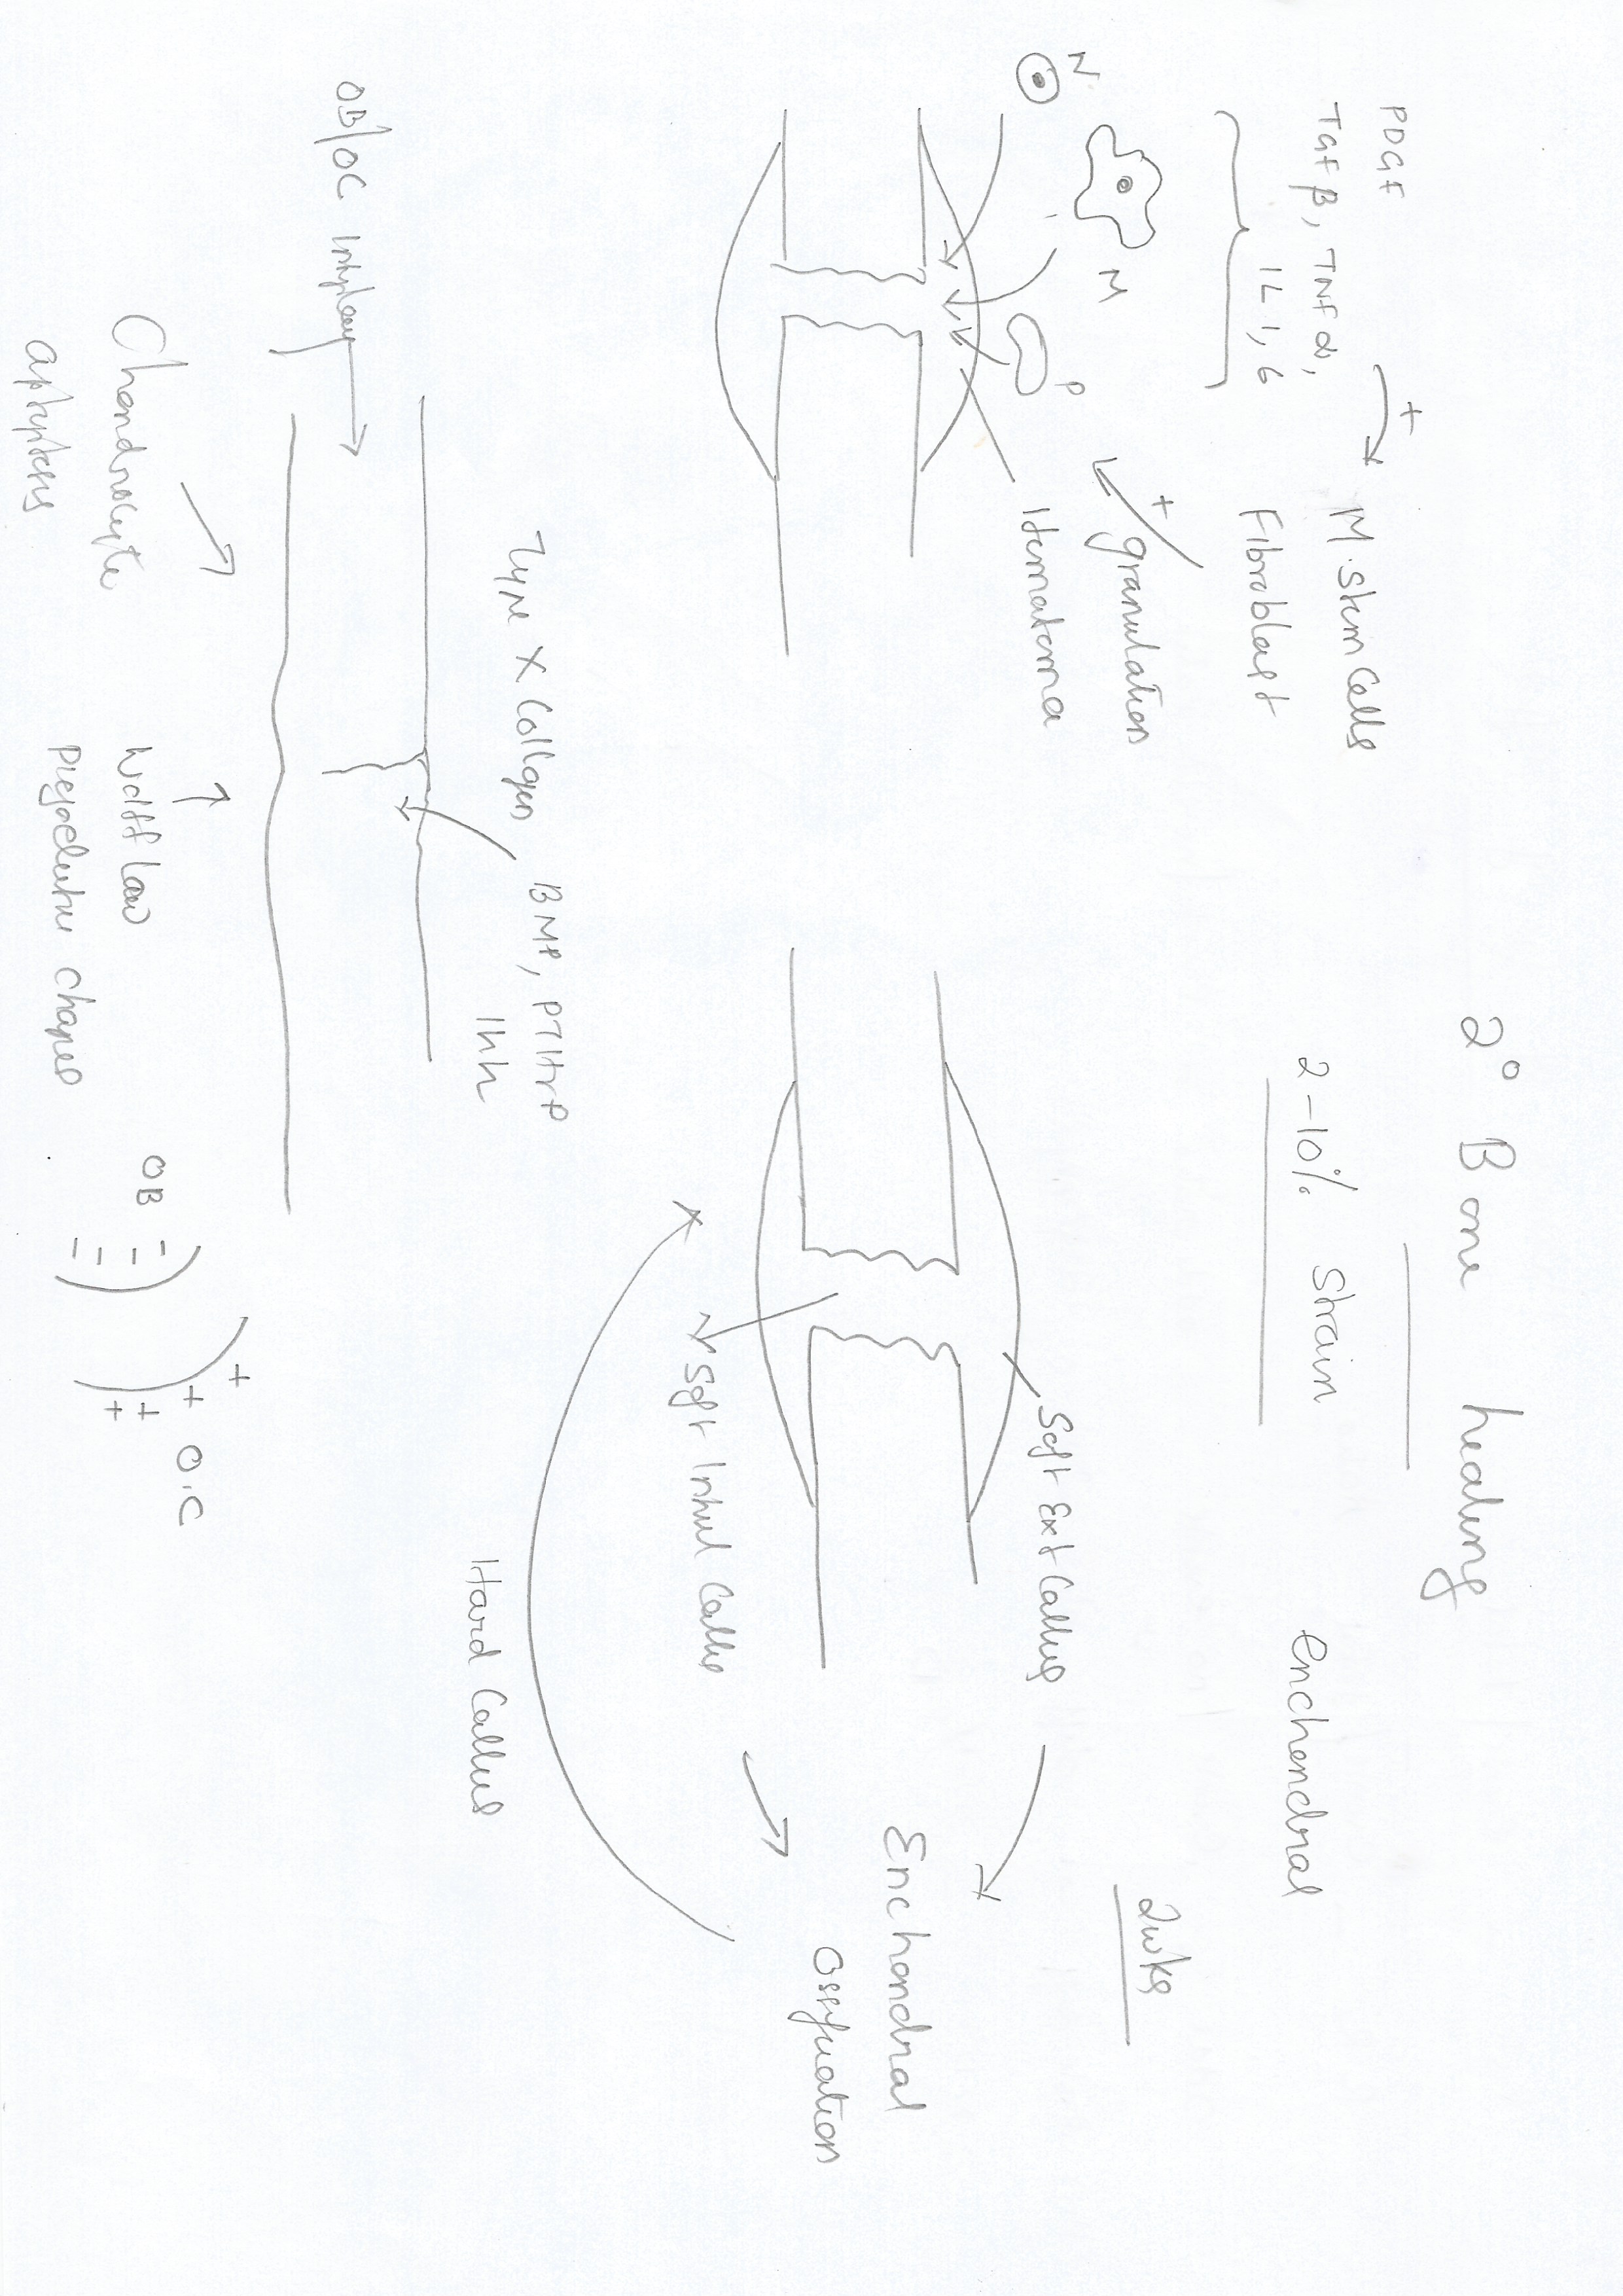 2° Bone healing
2-10% Strain
enchondral
PDGF
TGF β, TNF α,
IL 1, 6
+
M. Stem Cells
Fibroblast
N
M
P
+
granulation
Hematoma
2wks
Soft Ext Callus
Soft Intnl Callus
Enchondral
Ossification
Hard Callus
Type X Collagen
BMP, PTHrP
Ihh
OB/OC Interplay
Chondrocyte
apoptosis
Wolff law
piezoelectric changes
OB
- - - -
+ + + +
O.C